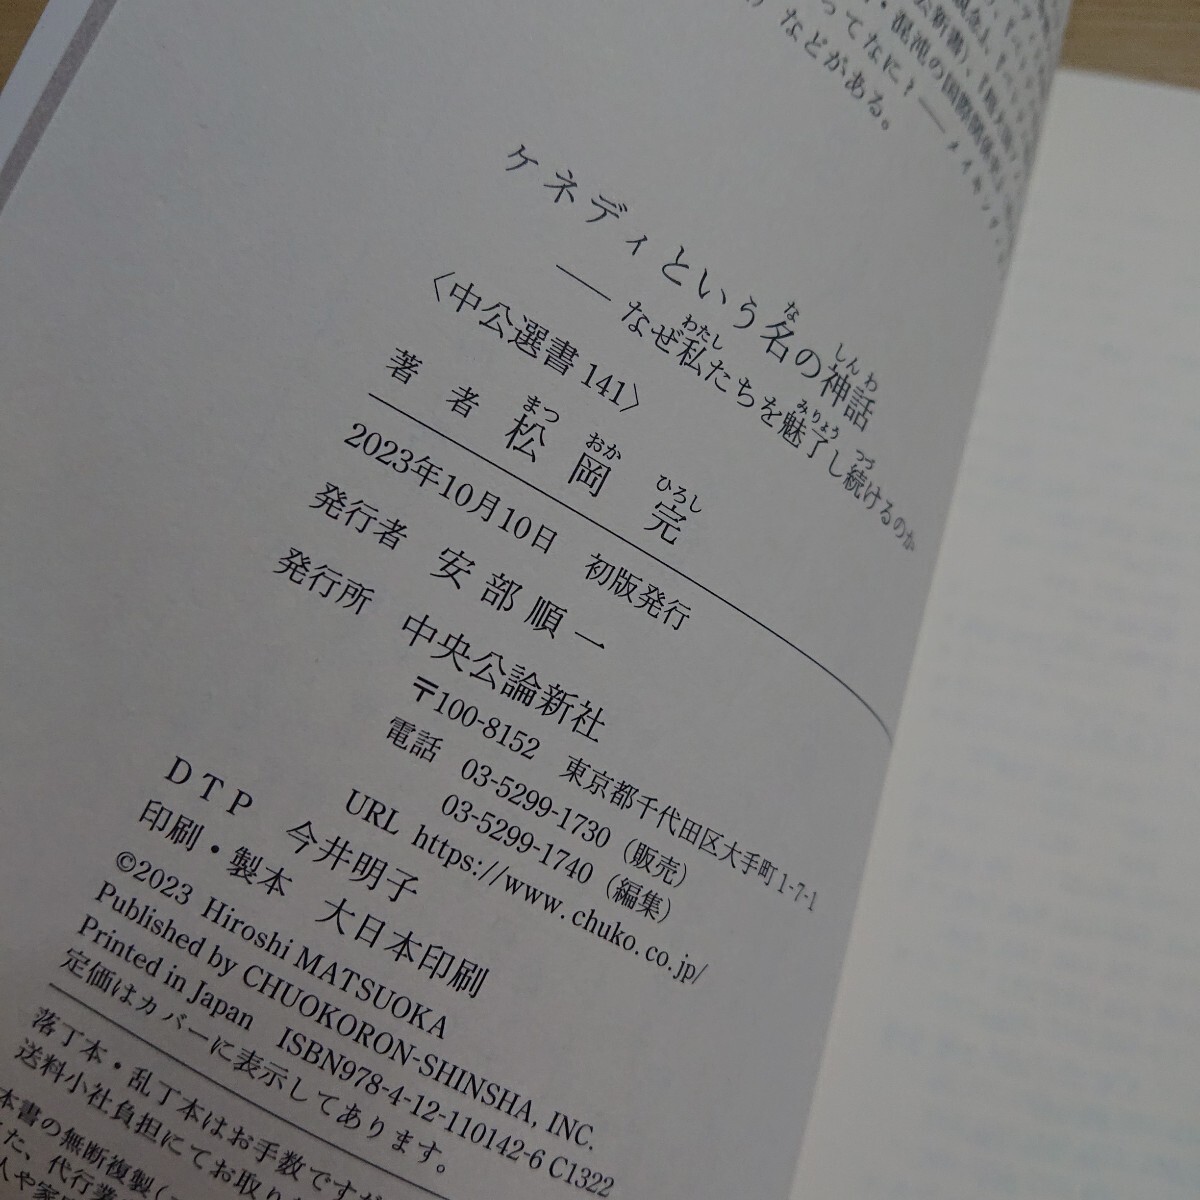 ってなに?――メイキング・
・混沌の国際関係史
などがある。
ケネディという名の神話
な
しんわ
――なぜ私たちを魅了し続けるのか
わたし
みりょう
つづ
〈中公選書 141〉
著者 松岡 完
まつ おか ひろし
2023年10月10日 初版発行
発行者 安部順一
発行所 中央公論新社
〒100-8152 東京都千代田区大手町1-7-1
電話 03-5299-1730(販売)
03-5299-1740(編集)
URL https://www.chuko.co.jp/
DTP 今井明子
印刷・製本 大日本印刷
©2023 Hiroshi MATSUOKA
Published by CHUOKORON-SHINSHA, INC.
Printed in Japan ISBN978-4-12-110142-6 C1322
定価はカバーに表示してあります。
落丁本・乱丁本はお手数ですが
送料小社負担にてお取り
本書の無断複製(
た、代行業
人や家庭